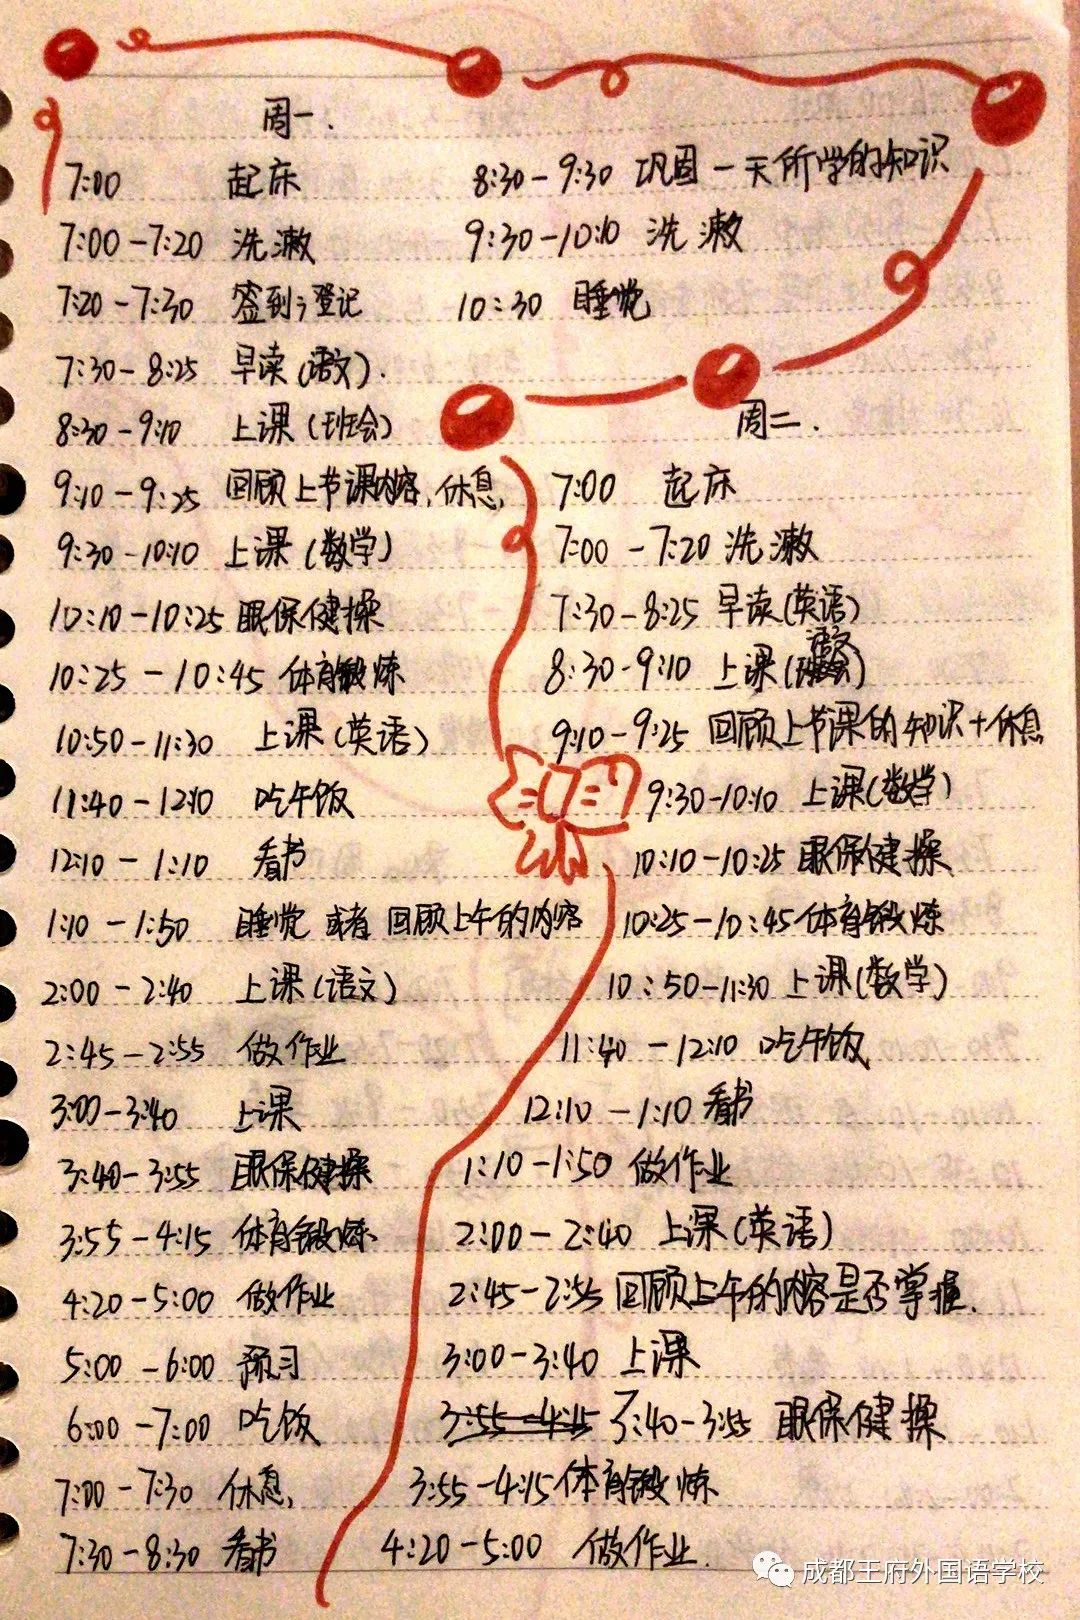 周一.
7:00 起床
7:00-7:20 洗漱
7:20-7:30 签到;登记
7:30-8:25 早读(语文).
8:30-9:10 上课(班会)
9:10-9:25 回顾上节课内容,休息,
9:30-10:10 上课(数学)
10:10-10:25 眼保健操
10:25-10:45 体育锻炼
10:50-11:30 上课(英语)
11:40-12:10 吃午饭
12:10-1:10 看书
1:10-1:50 睡觉 或者 回顾上午的内容
2:00-2:40 上课(语文)
2:45-2:55 做作业
3:00-3:40 上课
3:40-3:55 眼保健操
3:55-4:15 体育锻炼
4:20-5:00 做作业
5:00-6:00 预习
6:00-7:00 吃饭
7:00-7:30 休息,
7:30-8:30 看书
8:30-9:30 巩固一天所学的知识
9:30-10:10 洗漱
10:30 睡觉
周二.
7:00 起床
7:00-7:20 洗漱
7:30-8:25 早读(英语)
8:30-9:10 上课(语文)
9:10-9:25 回顾上节课的知识+休息
9:30-10:10 上课(数学)
10:10-10:25 眼保健操
10:25-10:45 体育锻炼
10:50-11:30 上课(数学)
11:40-12:10 吃午饭
12:10-1:10 看书
1:10-1:50 做作业
2:00-2:40 上课(英语)
2:45-2:55 回顾上午的内容是否掌握.
3:00-3:40 上课
3:55-4:15 3:40-3:55 眼保健操
3:55-4:15 体育锻炼
4:20-5:00 做作业.
成都王府外国语学校